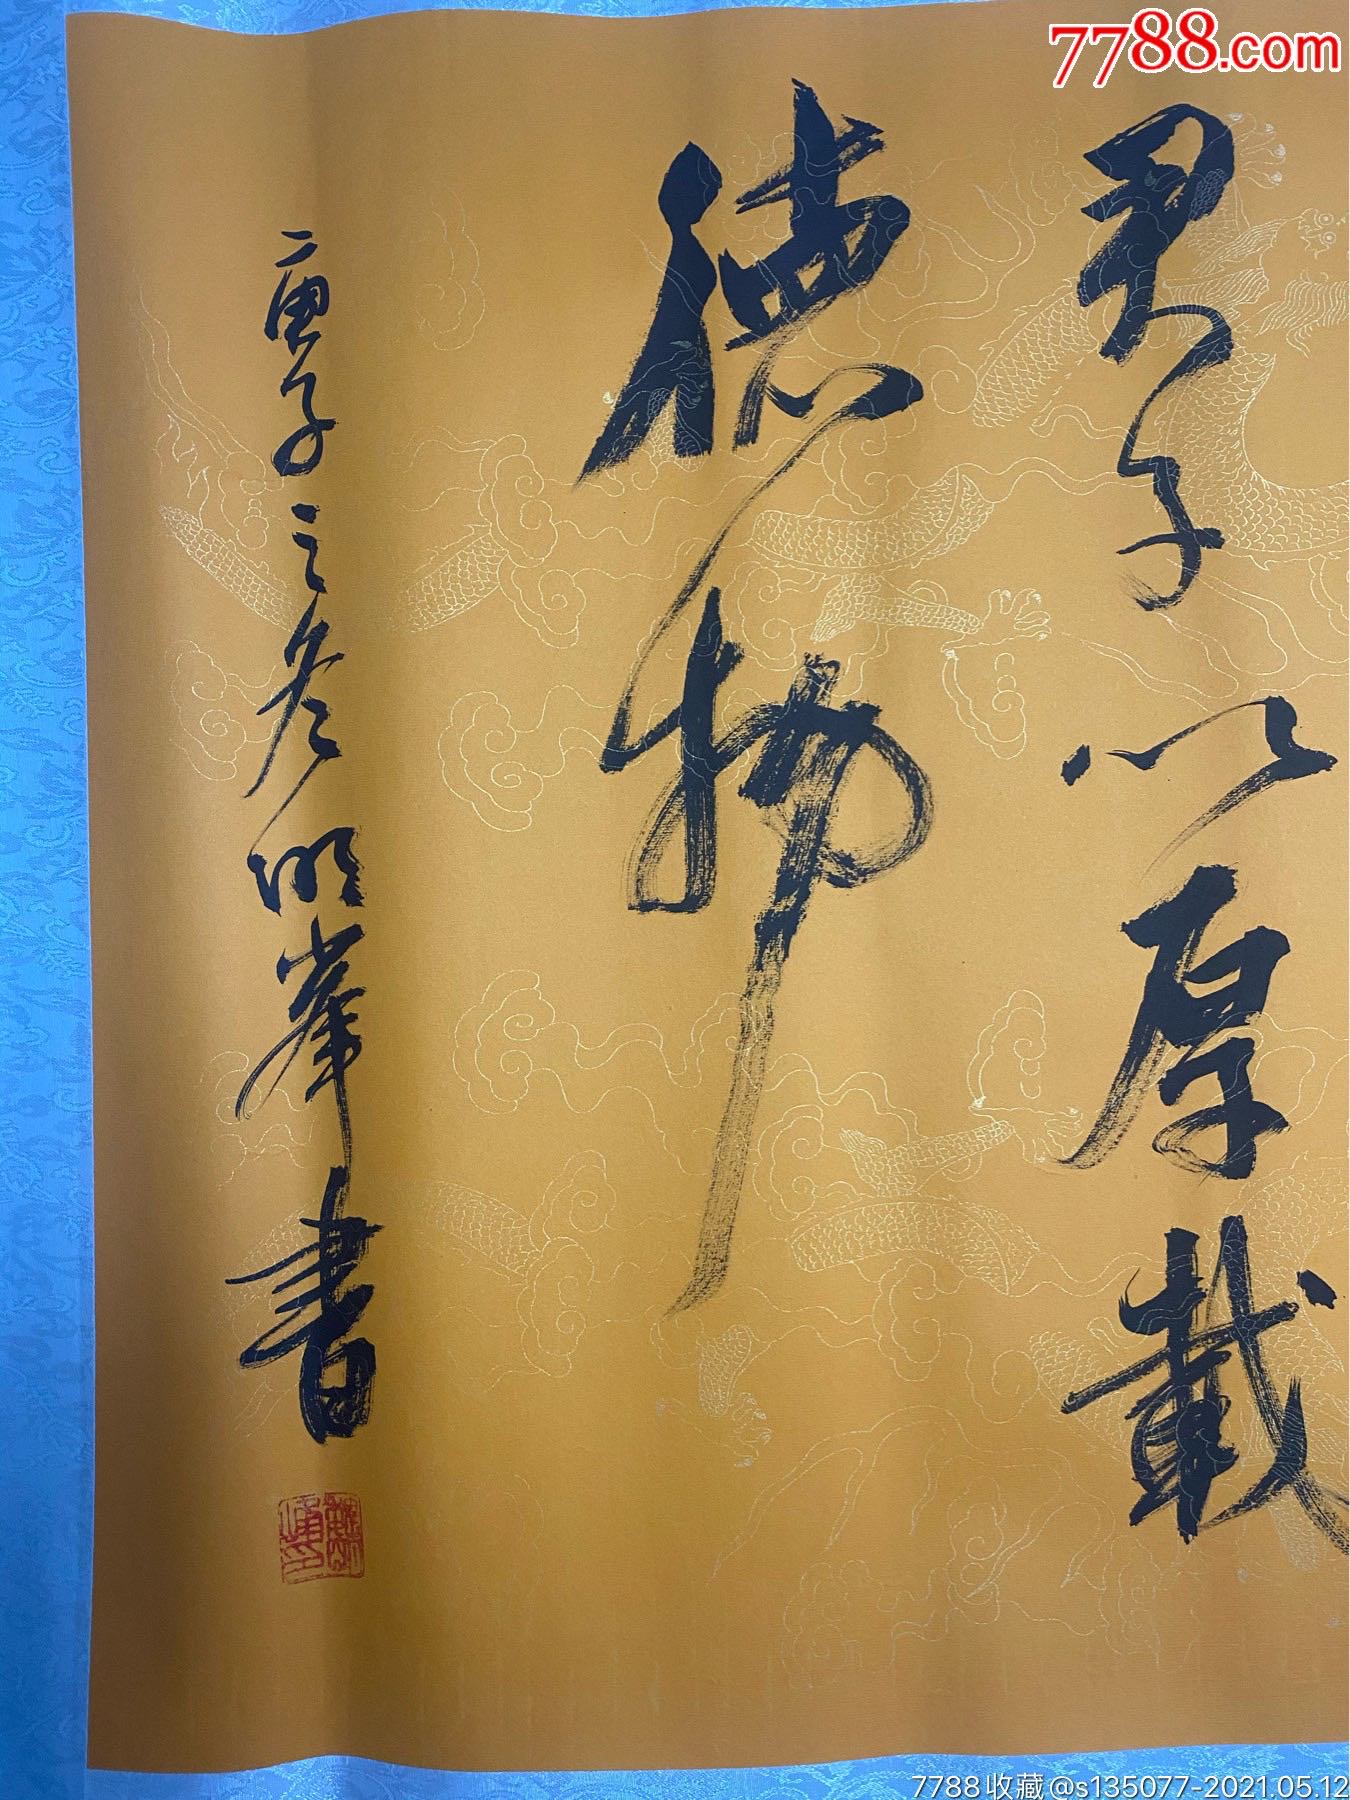 7788.com
君子以厚載
德物
庚子之冬明峯書
7788收藏@s135077-2021.05.12